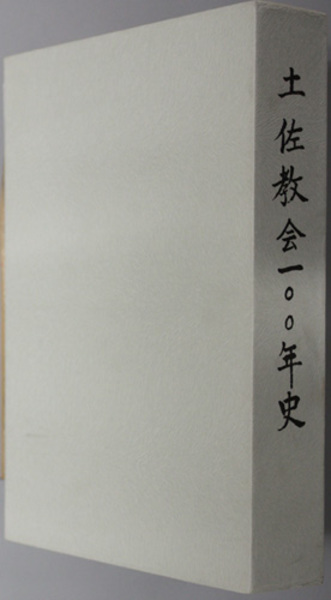 土佐教会一〇〇年史